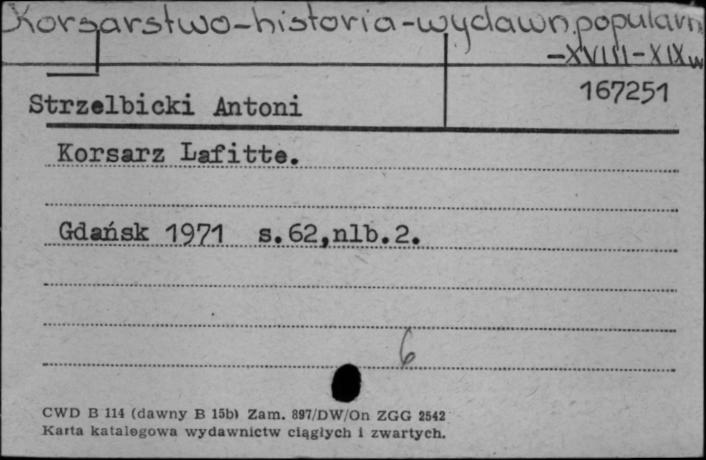 Korsarstwo-historia-wydawn.popularn
-XVIII-XIXw
167251
Strzelbicki Antoni
Korsarz Lafitte.
Gdańsk 1971 s.62,nlb.2.
6
CWD B 114 (dawny B 15b) Zam. 897/DW/On ZGG 2542
Karta katalogowa wydawnictw ciągłych i zwartych.